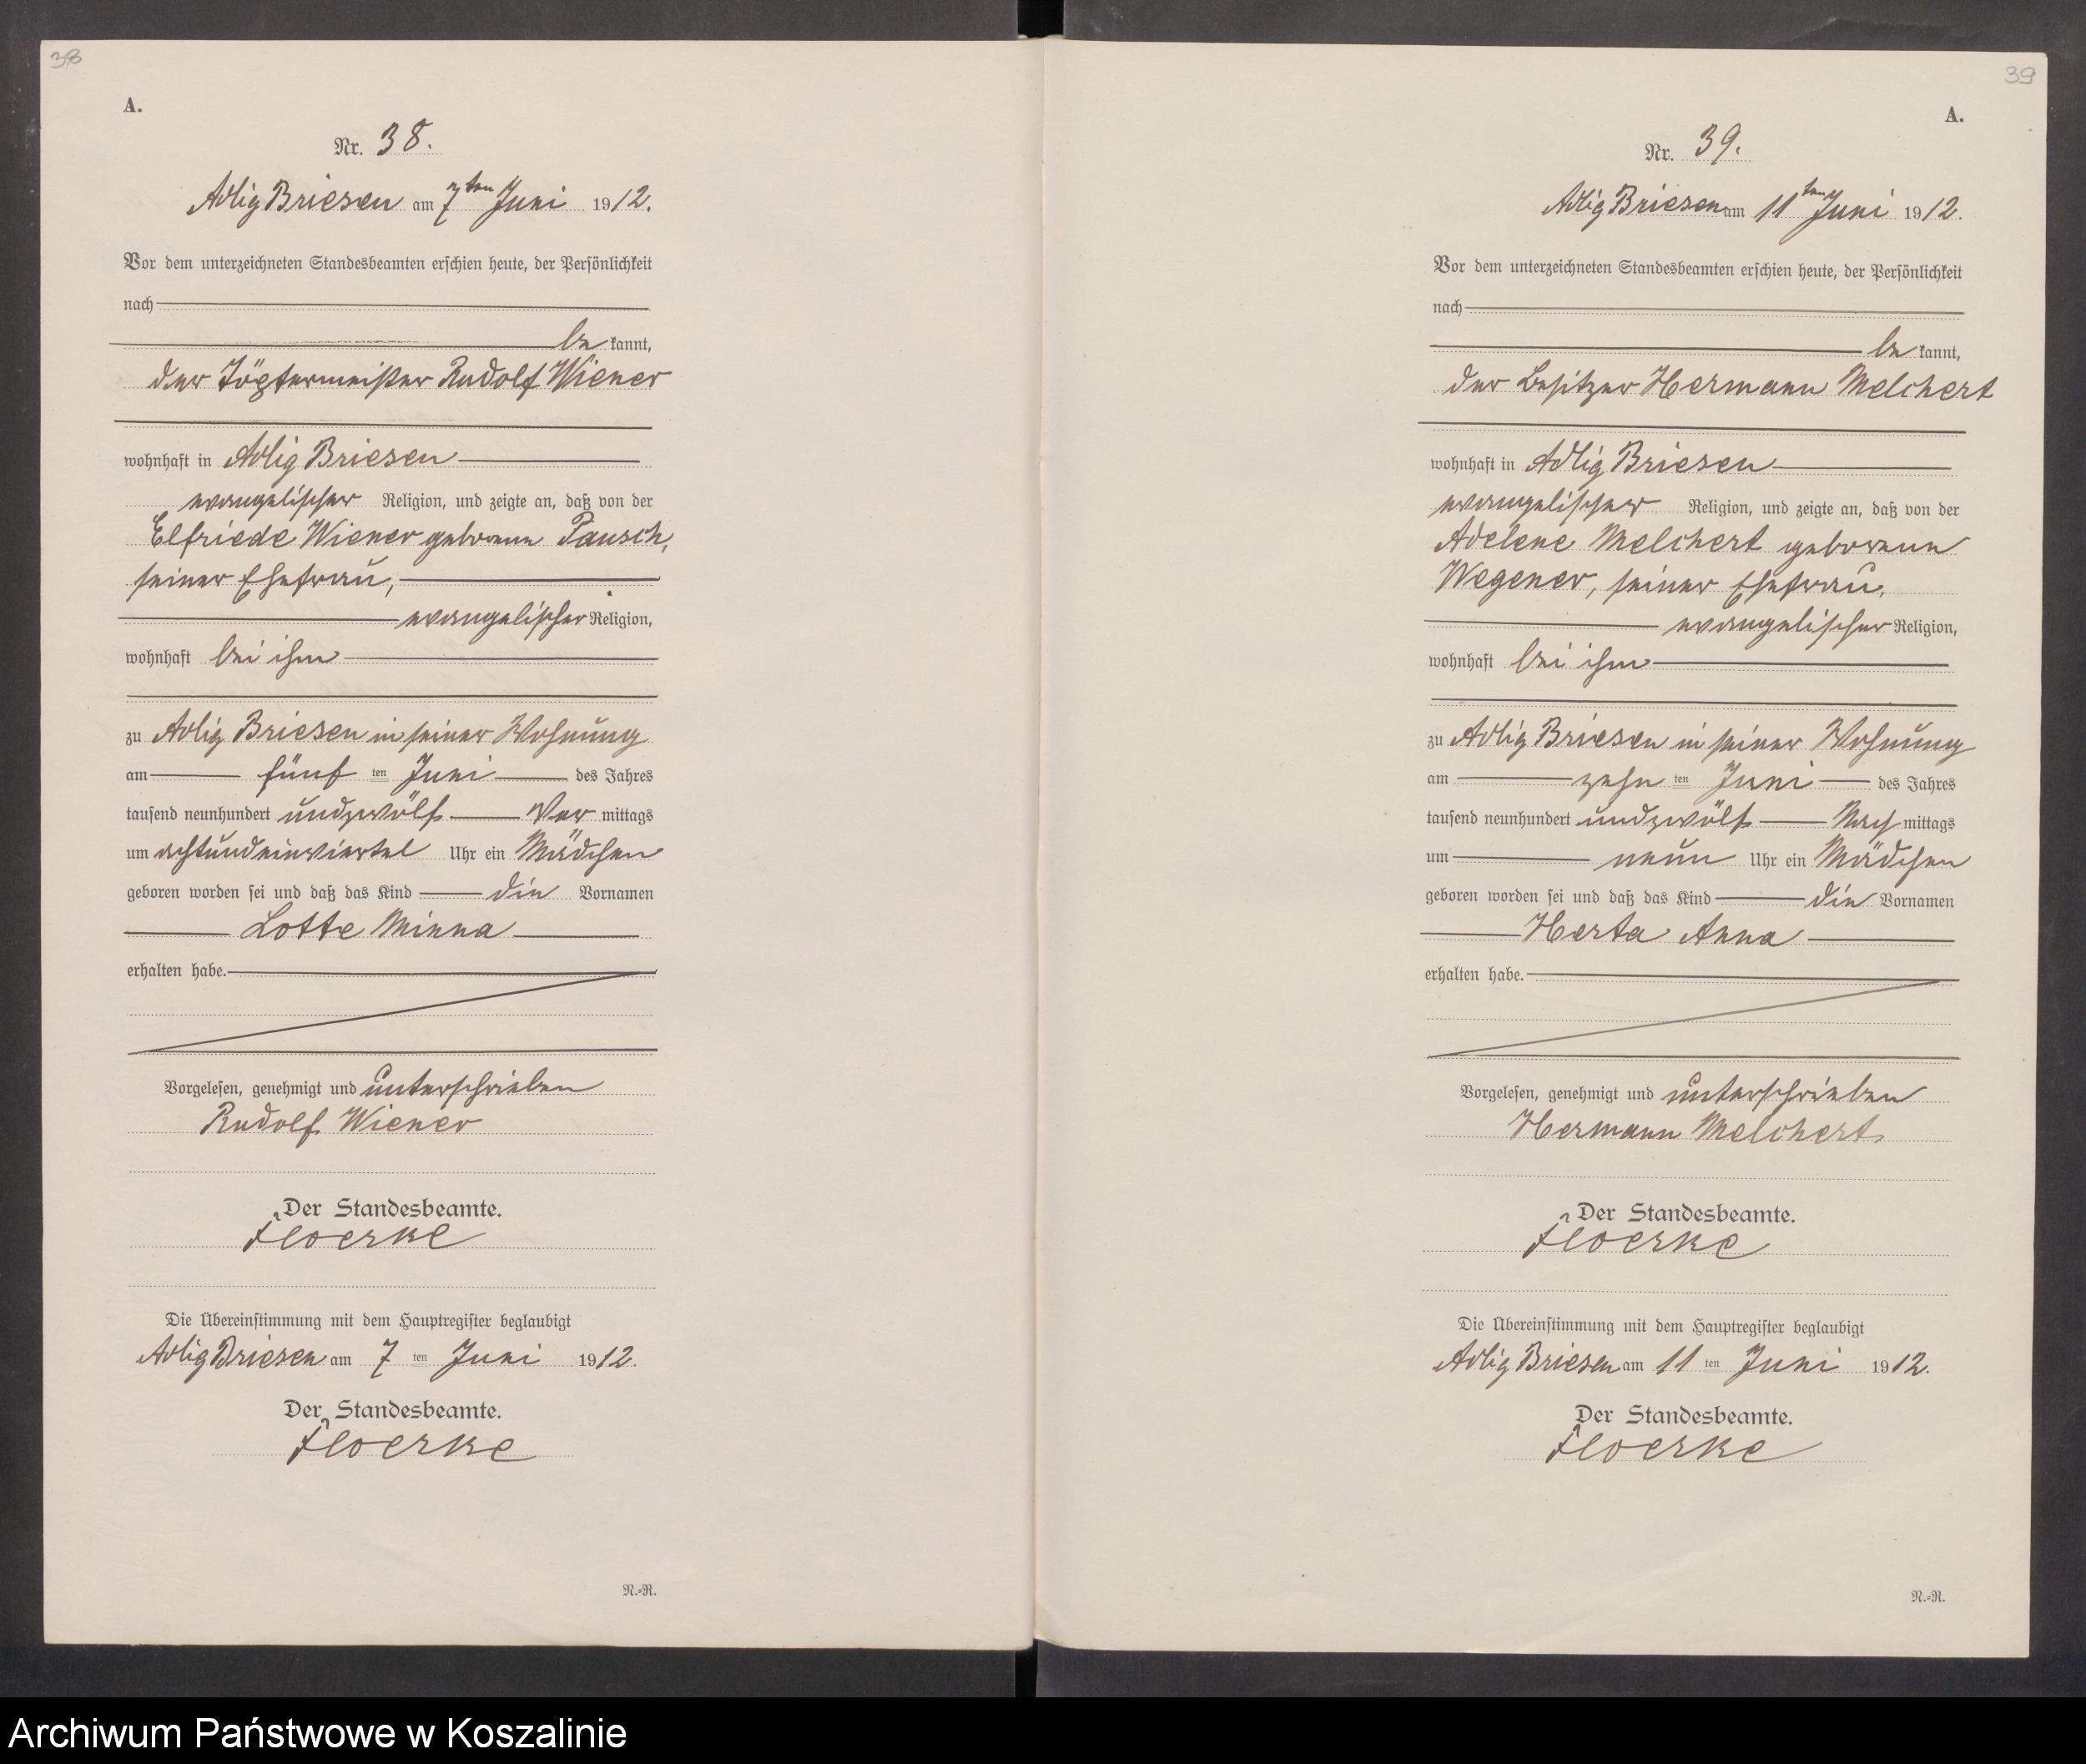 38
A.
Nr. 38.
Adlig Briesen am 7ten Juni 1912.
Vor dem unterzeichneten Standesbeamten erschien heute, der Persönlichkeit
nach
be kannt,
der Töpfermeister Rudolf Wiener
wohnhaft in Adlig Briesen
evangelischer Religion, und zeigte an, daß von der
Elfriede Wiener geborenen Pausch,
seiner Ehefrau,
evangelischer Religion,
wohnhaft bei ihm
zu Adlig Briesen in seiner Wohnung
am fünf ten Juni des Jahres
tausend neunhundert undzwölf Vor mittags
um achtundeinviertel Uhr ein Mädchen
geboren worden sei und daß das Kind die Vornamen
Lotte Minna
erhalten habe.
Vorgelesen, genehmigt und unterschrieben
Rudolf Wiener
Der Standesbeamte.
Floerke
Die Übereinstimmung mit dem Hauptregister beglaubigt
Adlig Briesen am 7 ten Juni 1912.
Der Standesbeamte.
Floerke
N.-R.
39
A.
Nr. 39.
Adlig Briesen am 11ten Juni 1912.
Vor dem unterzeichneten Standesbeamten erschien heute, der Persönlichkeit
nach
be kannt,
der Besitzer Hermann Melchert
wohnhaft in Adlig Briesen
evangelischer Religion, und zeigte an, daß von der
Adelene Melchert geborenen
Wegener, seiner Ehefrau,
evangelischer Religion,
wohnhaft bei ihm
zu Adlig Briesen in seiner Wohnung
am zehn ten Juni des Jahres
tausend neunhundert undzwölf Nach mittags
um neun Uhr ein Mädchen
geboren worden sei und daß das Kind die Vornamen
Herta Anna
erhalten habe.
Vorgelesen, genehmigt und unterschrieben
Hermann Melchert
Der Standesbeamte.
Floerke
Die Übereinstimmung mit dem Hauptregister beglaubigt
Adlig Briesen am 11 ten Juni 1912.
Der Standesbeamte.
Floerke
N.-R.
Archiwum Państwowe w Koszalinie